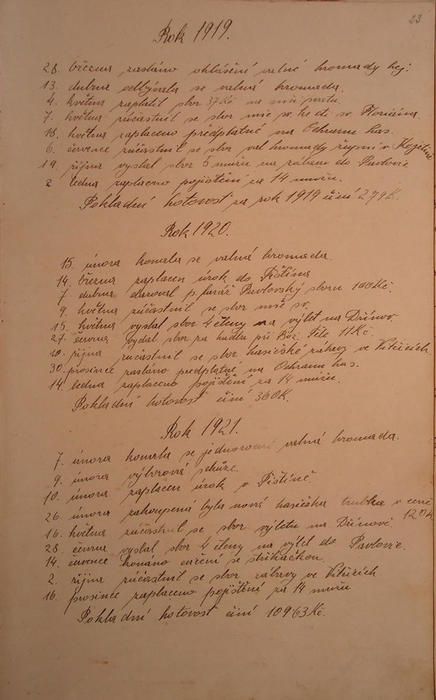 23
Rok 1919.
28. března zasláno ohlášení valné hromady hej.
13. dubna odbývala se valná hromada.
4. května zaplatil sbor 37Kč na
7. května zúčastnil se sbor mše sv. ke cti sv. Floriána
18. května zaplaceno předplatné na Ochranu has.
6. července zúčastnil se sbor val hromady župní v
19. října vyslal sbor 5 mužů na zábavu do Pavlovic
2 ledna zaplaceno pojištění za 14 mužů.
Pokladní hotovost za rok 1919 činí 279K.
Rok 1920.
15. února konala se valná hromada.
14. března zaplacen úrok do Tištína
7. dubna daroval p. farář Pavlovský sboru 100Kč
9. května zúčastnil se sbor mše sv.
15. května vyslal sbor 4 členy na výlet na Dřínov
27. června vydal sbor za hudbu při Bož. Těle 11Kč.
10. října zúčastnil se sbor hasičské zábavy ve Vitčicích
30. prosince zasláno předplatné na Ochranu has.
14. ledna zaplaceno pojištění za 14 mužů.
Pokladní hotovost činí 360K.
Rok 1921.
7. února konala se valná hromada.
9. února výborová schůze.
10. února zaplacen úrok v Tištíně
26. února zakoupena byla nová hasičská trubka v ceně
120K
16. května zúčastnil se sbor výletu na Dřínově
28. června vyslal sbor 4 členy na výlet do Pavlovic.
14. července konáno cvičení se stříkačkou.
2. října zúčastnil se sbor zábavy ve Vitčicích
16. prosince zaplaceno pojištění za 14 mužů
Pokladní hotovost činí 10963Kč.